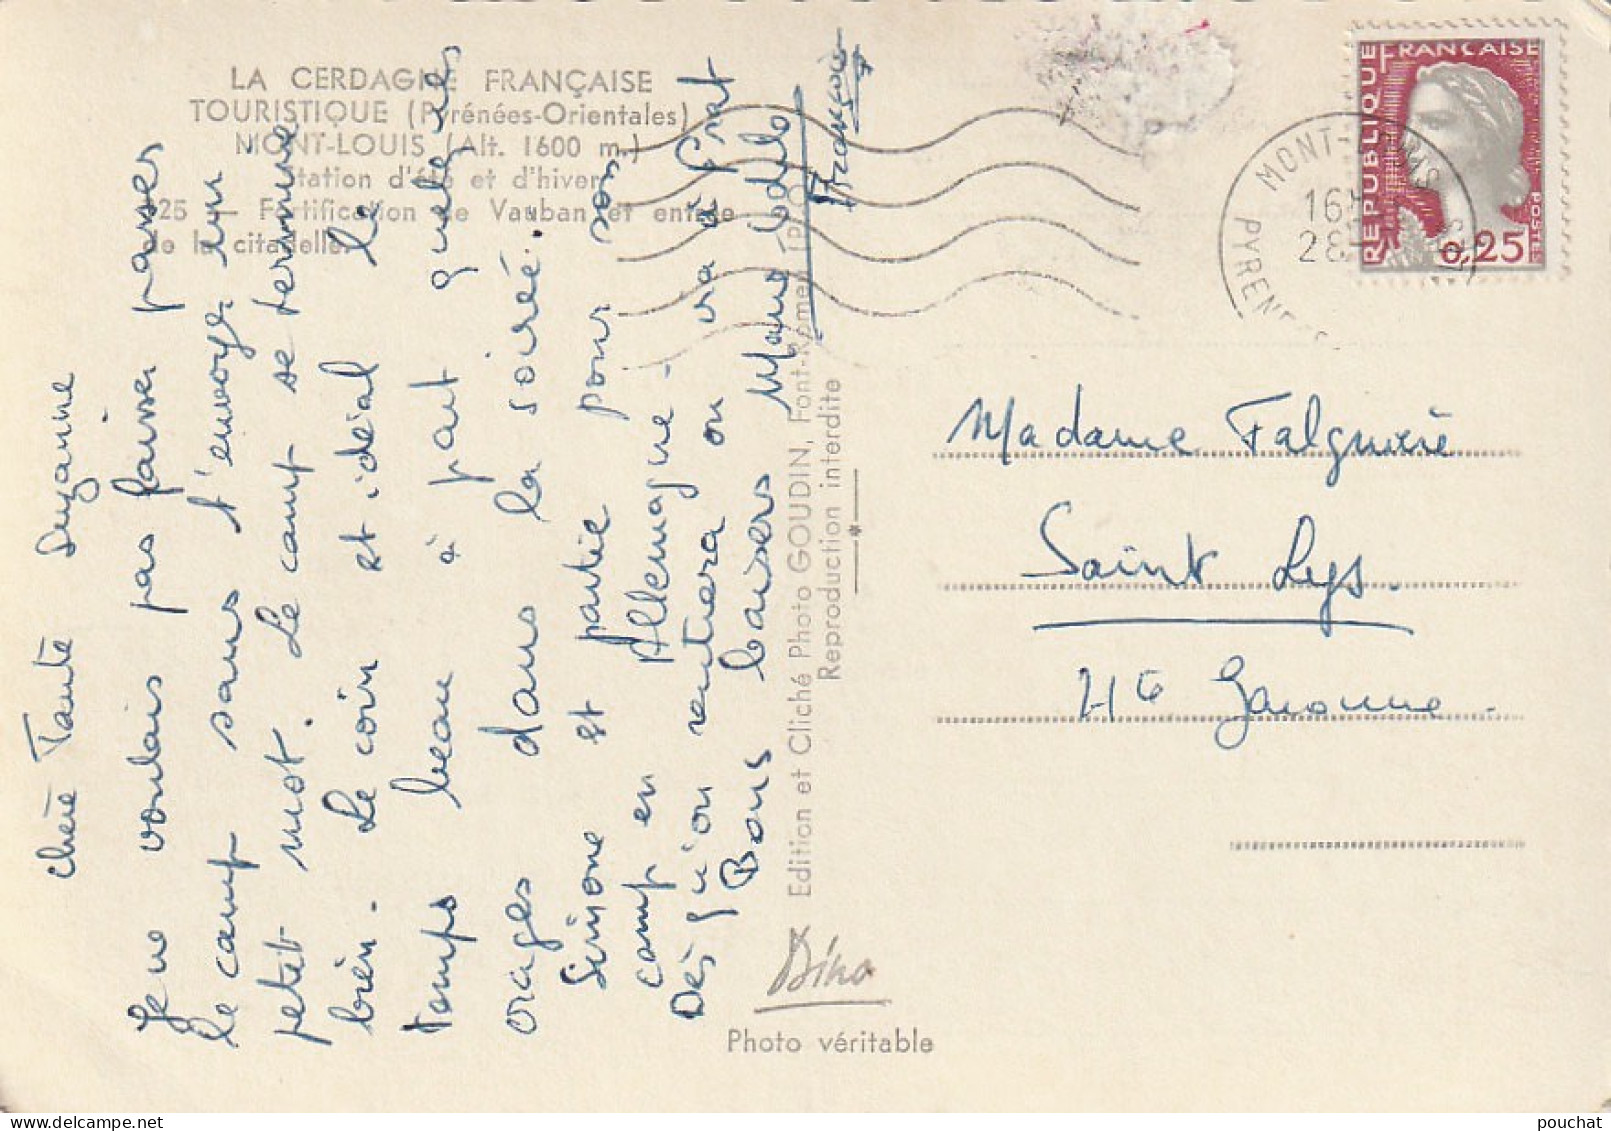 LA CERDAGNE FRANÇAISE
TOURISTIQUE (Pyrénées-Orientales)
MONT-LOUIS (Alt. 1600 m.)
Station d'été et d'hiver
125 — Fortification de Vauban et entrée
de la citadelle.
chère Tante Suzanne
Je ne voulais pas laisser passer
le camp sans t'envoyer un
petit mot. Le camp se termine
bien. Le coin est idéal le
temps beau à part quelques
orages dans la soirée.
Simone est partie pour son
camp en Allemagne -
Dès qu'on rentrera on va à Prat
Bons baisers Marie Odile
Françoise
Edition et Cliché Photo GOUDIN, Font-Romeu (P.-O.)
Reproduction interdite
Dino
Photo véritable
REPUBLIQUE FRANÇAISE
POSTES
0,25
MONT-LOUIS
16H
28
PYRENEES
Madame Falguière
Saint Lys.
Hte Garonne.
pouchat